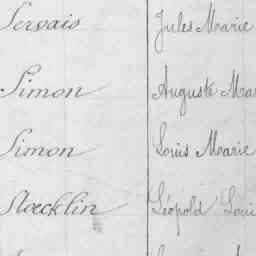 Servais Jules Marie
Simon Auguste Mar
Simon Louis Marie
Stoecklin Léopold Loui